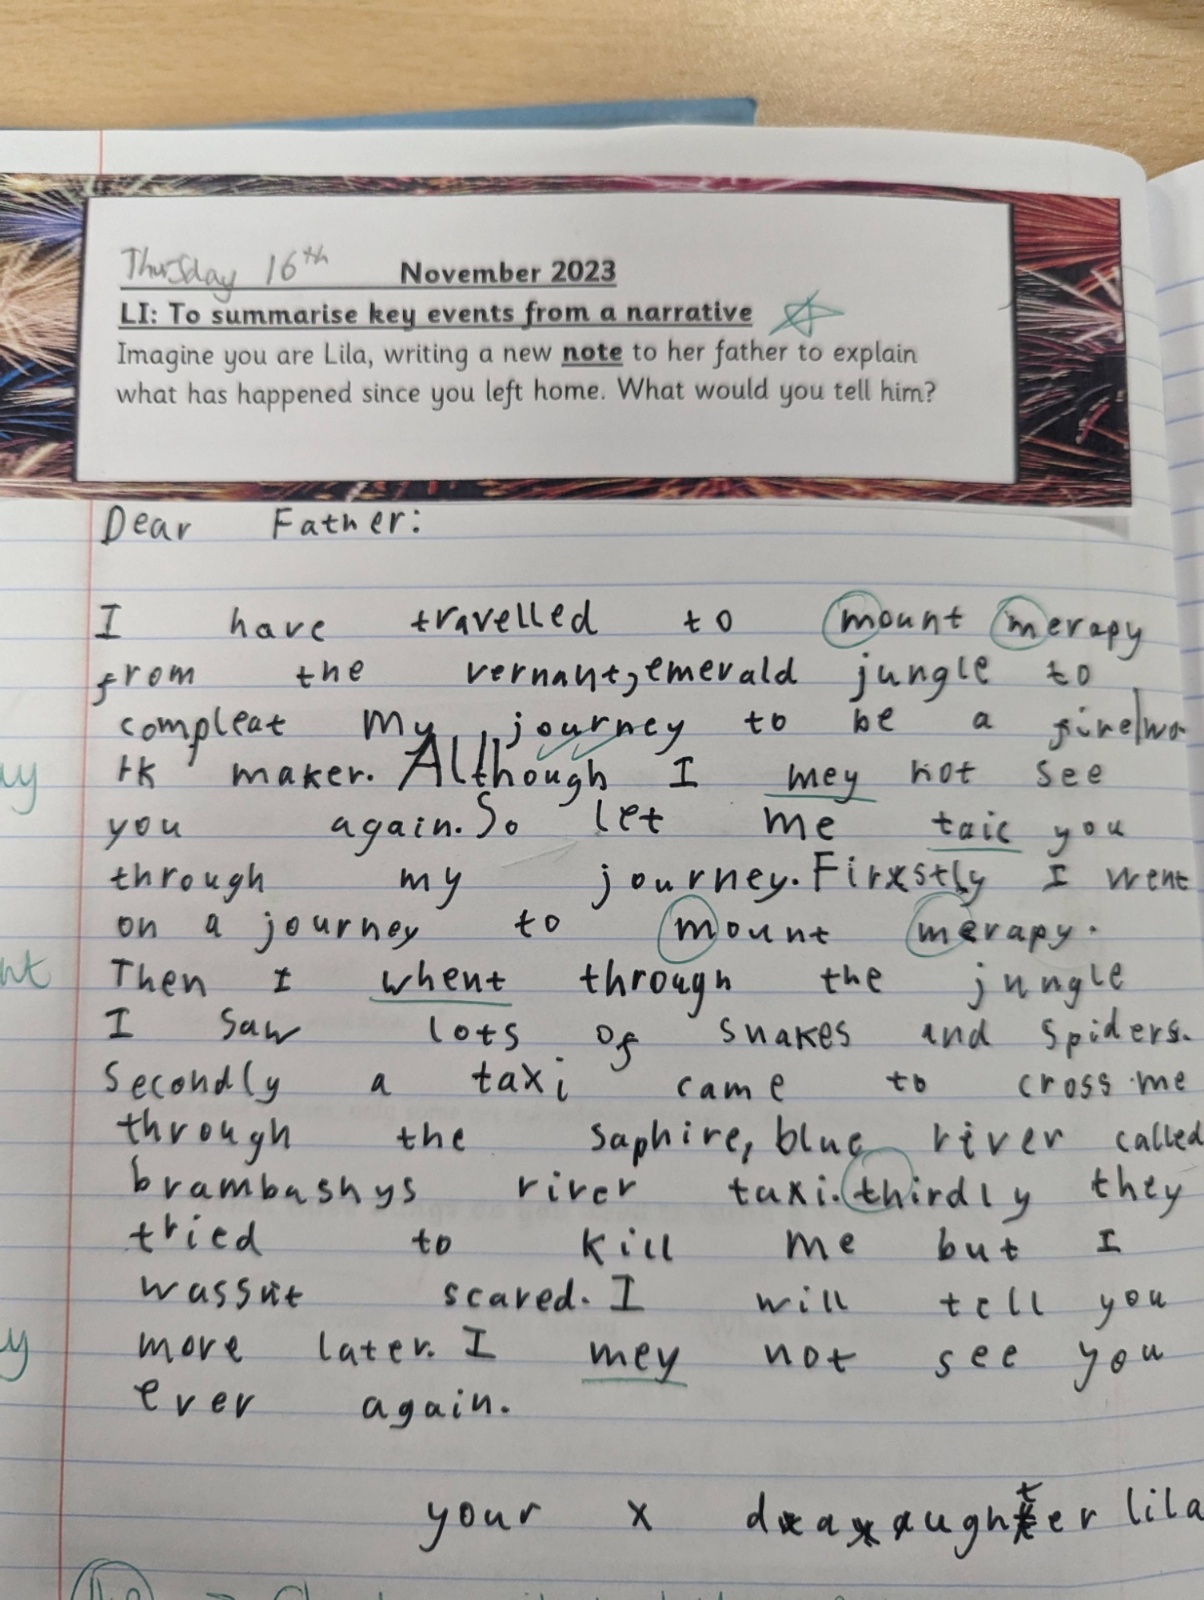 Thursday 16th November 2023
LI: To summarise key events from a narrative
Imagine you are Lila, writing a new note to her father to explain
what has happened since you left home. What would you tell him?
Dear Father:
I have travelled to mount merapy
from the vernant, emerald jungle to
compleat my journey to be a firewo
rk maker. Although I mey not see
you again. So let me taic you
through my journey. Firstly I went
on a journey to mount merapy.
Then I whent through the jungle
I saw lots of snakes and spiders.
Secondly a taxi came to cross me
through the saphire, blue river called
brambashys river taxi. thirdly they
tried to kill me but I
wassnt scared. I will tell you
more later. I mey not see you
ever again.
your x daughter lila